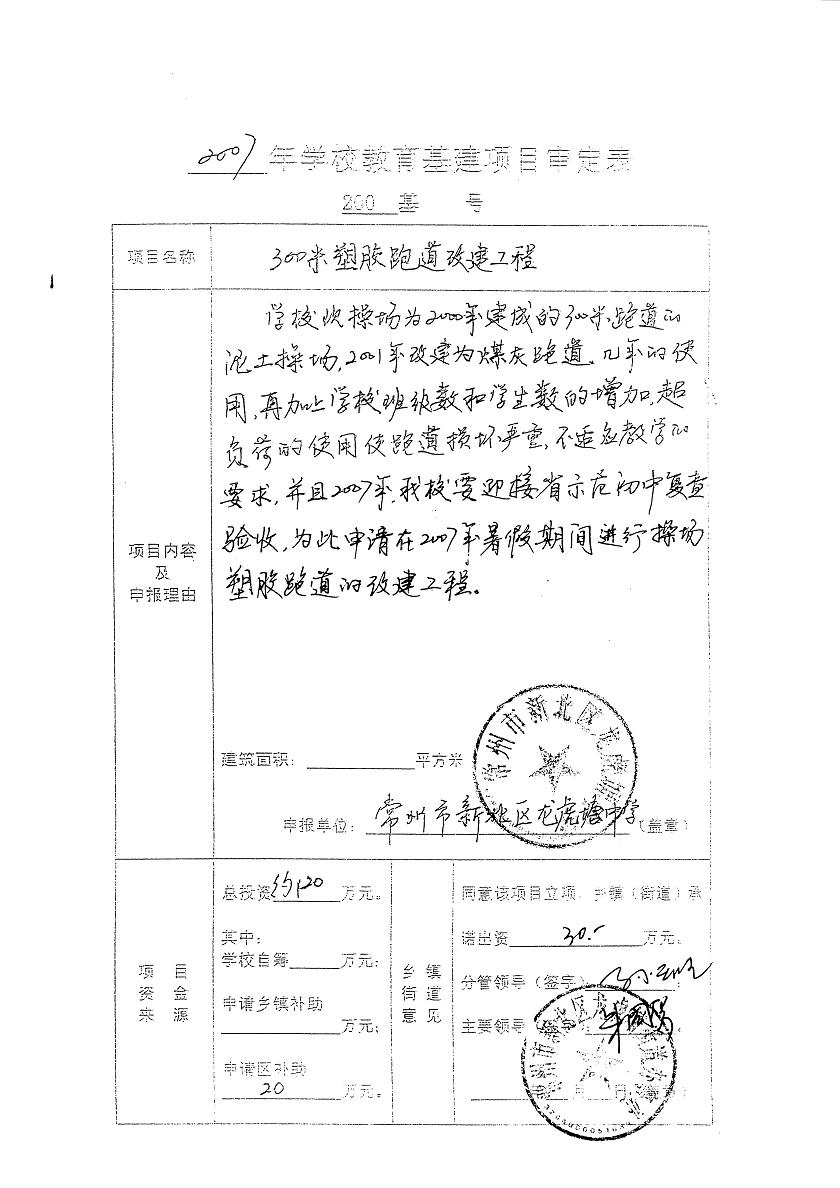 2007年学校教育基建项目审定表
200 基 号
项目名称
300米塑胶跑道改建工程
项目内容
及
申报理由
学校炊操场为2000年建成的300米跑道的
泥土操场,2001年改建为煤灰跑道,几年的使
用,再加上学校班级数和学生数的增加,超
负荷的使用使跑道损坏严重,不适应教学的
要求,并且2007年,我校要迎接省示范初中复查
验收,为此申请在2007年暑假期间进行操场
塑胶跑道的改建工程。
建筑面积: 平方米
申报单位:常州市新北区龙虎塘中学(盖章)
常州市新北区龙虎塘
项目
资金
来源
总投资约120万元。
其中:
学校自筹 万元;
申请乡镇补助
万元;
申请区补助
20 万元。
乡镇
街道
意见
同意该项目立项,乡镇(街道)承
诺出资 30.- 万元。
分管领导(签字)
主要领导
年 月 日(盖章)